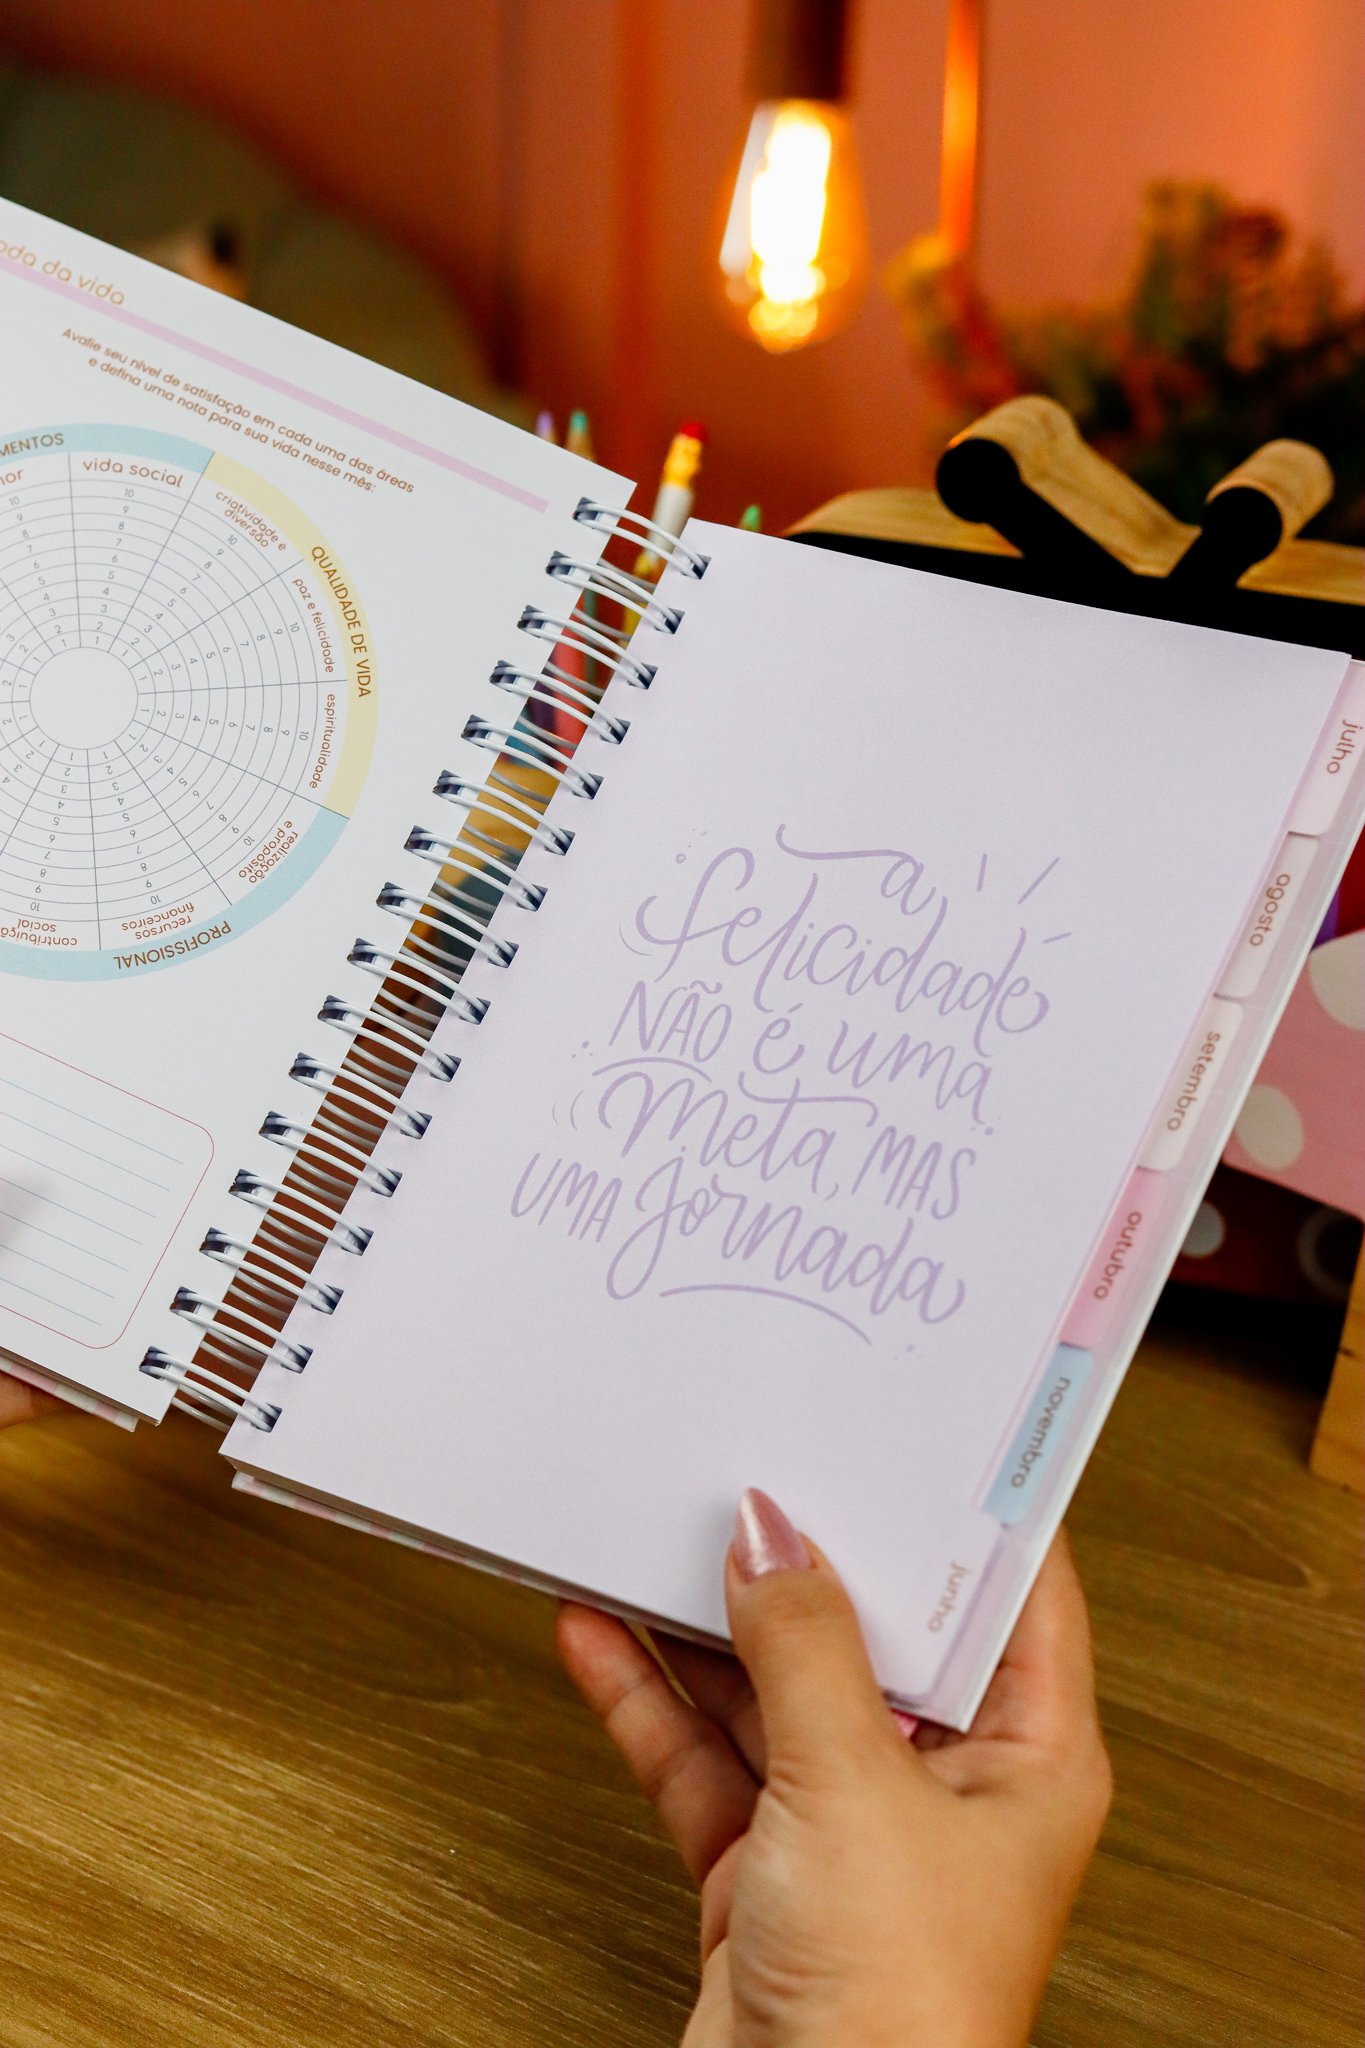 da vida
Avalie seu nível de satisfação em cada uma das áreas
e defina uma nota para sua vida nesse mês:
vida social
criatividade e
diversão
QUALIDADE DE VIDA
paz e felicidade
espiritualidade
realização
e propósito
PROFISSIONAL
recursos
financeiros
social
10
9
8
7
6
5
4
3
2
1
a
felicidade
NÃO é uma
meta, MAS
UMA jornada
julho
agosto
setembro
outubro
novembro
junho